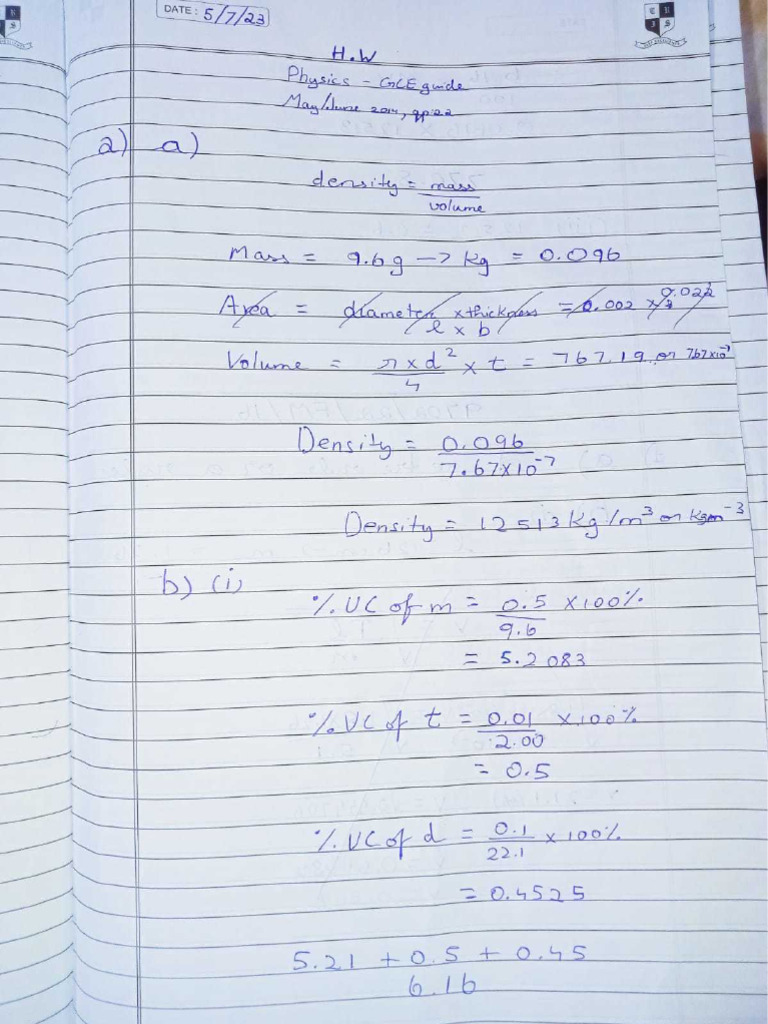 DATE: 5/7/23
H.W
Physics - GCE guide
May/June 2014, qp22
2) a)
density = mass
volume
Mass = 9.6g → kg = 0.096
Area = diameter x thickness = 0.002 x 0.022
l x b
Volume = π x d² x t = 767.19 or 767x10⁻⁹
4
Density = 0.096
7.67x10⁻⁷
Density = 12513 kg/m³ or kgm⁻³
b) (i)
% UC of m = 0.5 x 100%
9.6
= 5.2083
% UC of t = 0.01 x 100%
2.00
= 0.5
% UC of d = 0.1 x 100%
22.1
= 0.4525
5.21 + 0.5 + 0.45
6.16